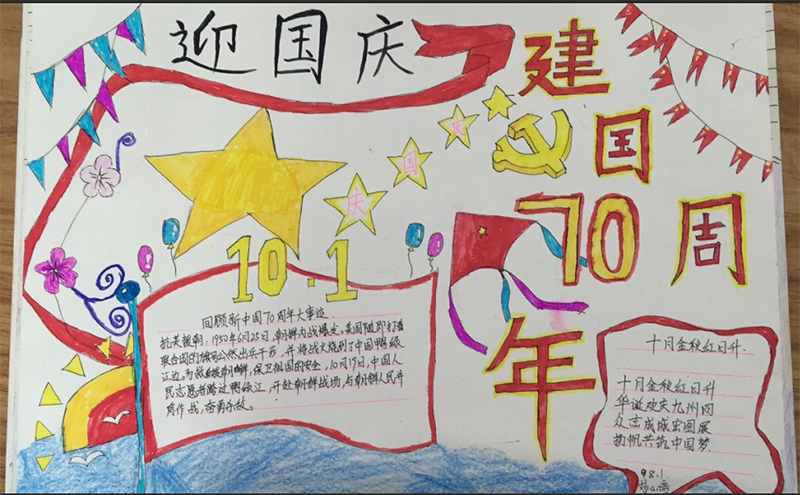 迎国庆
建国70周年
庆国庆
10.1
回顾新中国70周年大事迹
抗美援朝:1950年6月25日,朝鲜内战爆发,美国随即打着
联合国的旗号公然出兵干涉,并将战火烧到了中国鸭绿
江边,为救援朝鲜,保卫祖国的安全,10月19日,中国人
民志愿者跨过鸭绿江,开赴朝鲜战场,与朝鲜人民并
肩作战,奋勇杀敌。
十月金秋红日升.
十月金秋红日升
华诞欢庆九州同
众志成城宏图展
扬帆共筑中国梦